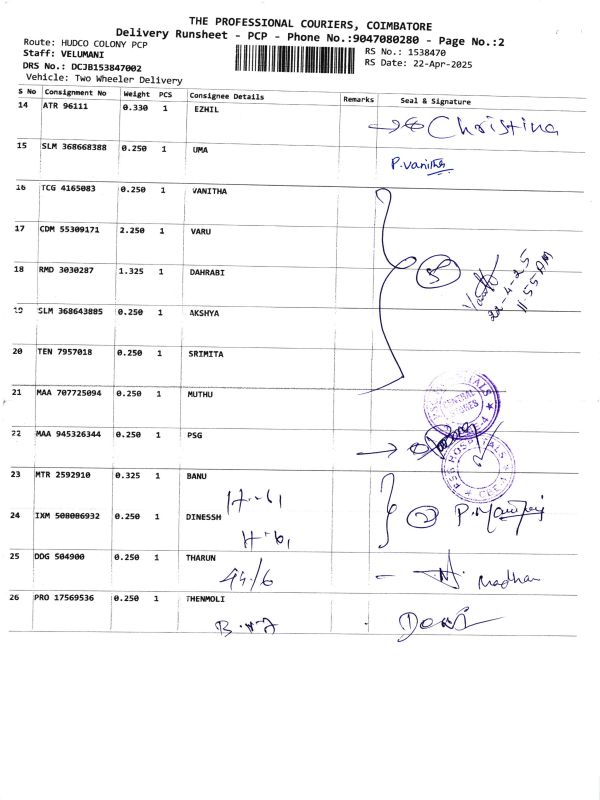 THE PROFESSIONAL COURIERS, COIMBATORE
Delivery Runsheet - PCP - Phone No.:9047080280 - Page No.:2
Route: HUDCO COLONY PCP
Staff: VELUMANI
DRS No.: DCJB153847002
Vehicle: Two Wheeler Delivery
RS No.: 1538470
RS Date: 22-Apr-2025
S No Consignment No Weight PCS Consignee Details Remarks Seal & Signature
14 ATR 96111 0.330 1 EZHIL Christina
15 SLM 368668388 0.250 1 UMA P.Vanitha
16 TCG 4165083 0.250 1 VANITHA
17 CDM 55309171 2.250 1 VARU
18 RMD 3030287 1.325 1 DAHRABI 5 22-4-25 11.55 AM
19 SLM 368643885 0.250 1 AKSHYA
20 TEN 7957018 0.250 1 SRIMITA
21 MAA 707725094 0.250 1 MUTHU
22 MAA 945326344 0.250 1 PSG
PSG HOSPITALS
23 MTR 2592910 0.325 1 BANU
H-61
24 IXM 508086932 0.250 1 DINESSH 2
H-61
25 DDG 504900 0.250 1 THARUN
Madhan
26 PRO 17569536 0.250 1 THENMOLI